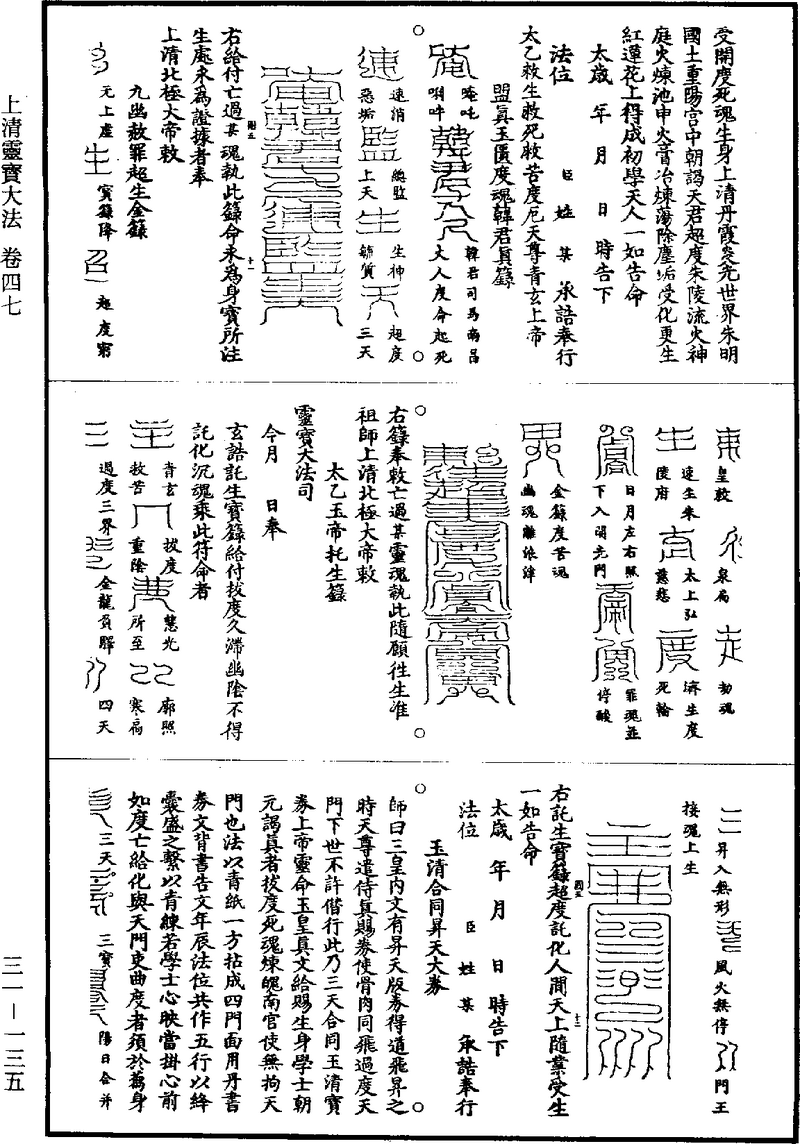 上清靈寶大法 卷四七
三一—一三五
受開度死魂生身上清丹霞炎光世界朱明
國土重陽宮中朝謁天君超度朱陵流火神
庭火煉池中火膏冶煉蕩除塵垢受化更生
紅蓮花上得成初學天人一如告命
太歲 年 月 日 時告下
法位 臣 姓 某 承誥奉行
太乙救生救死救苦度厄天尊青玄上帝
盟真玉匱度魂韓君真籙
唵吒
韓君司馬南昌
大人度命起死
速消
惡垢
總監
上天
生神
毓質
超度
三天
右給付亡過某魂執此籙命永為身寶所注
生處永為證據者奉
上清北極大帝敕
九幽赦罪超生金籙
元上虛
寶籙降
超度窮
皇敕
泉扃
幼魂
速生朱
陵府
太上弘
慈悲
濟生度
死輪
日月左右照
下入開光門
罪魂並
停酸
金籙度苦魂
幽魂離依津
右籙奉敕亡過某靈魂執此隨願往生准
祖師上清北極大帝敕
太乙玉帝托生籙
靈寶大法司
今月 日奉
玄誥託生寶籙給付拔度久滯幽陰不得
託化沉魂乘此符命者
青玄
救苦
拔度
重陰
慧光
所至
廓照
寒扃
過度三界
金龍負驛
四天
昇入無形
風火無停
門王
接魂上生
右託生寶籙超度託化人間天上隨業受生
一如告命
太歲 年 月 日 時告下
法位 臣 姓 某 承誥奉行
玉清合同昇天大券
師曰三皇內文有昇天版券得道飛昇之
時天尊遣侍真賜券使骨肉同飛過度天
門下世不許偕行此乃三天合同玉清寶
券上帝靈命玉皇真文給賜生身學士朝
元謁真者拔度死魂煉魄南宮使無拘天
門也法以青紙一方拈成四門面用丹書
券文背書告文年辰法位共作五行以絳
囊盛之繫以青練若學士心映當掛心前
如度亡給化與天門吏曲度者須於為身
三天
三寶
陽日合并